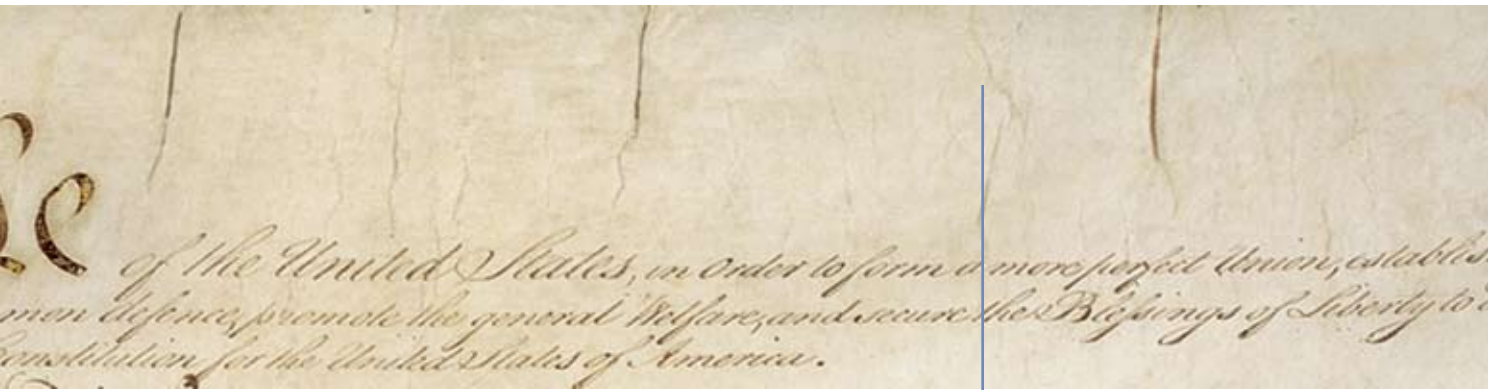 le of the United States, in Order to form a more perfect Union, establis
mon defence, promote the general Welfare, and secure the Blessings of Liberty to
Constitution for the United States of America.